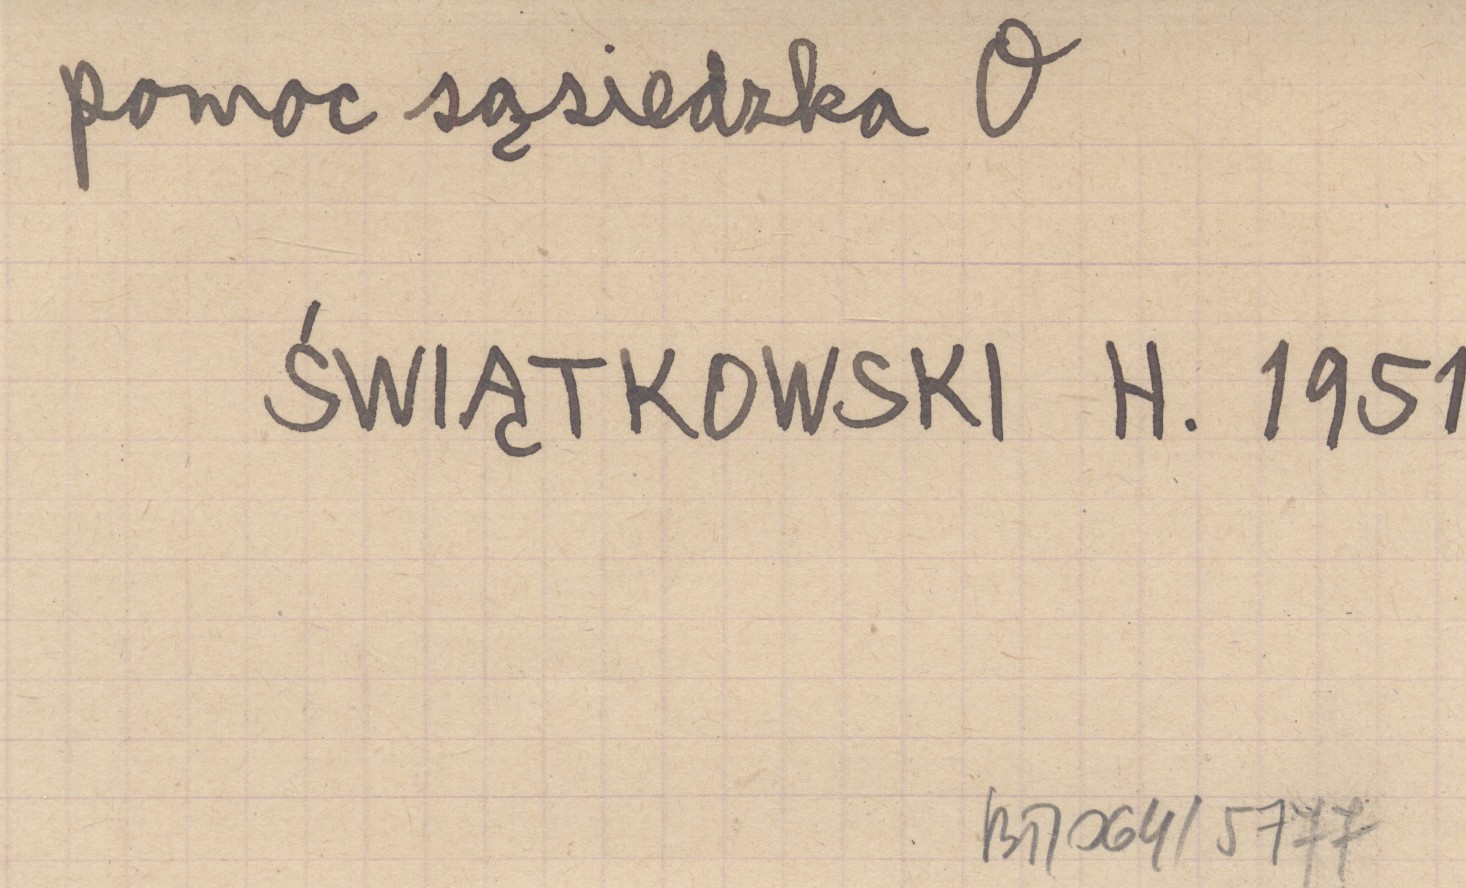 pomoc sąsiedzka O
ŚWIĄTKOWSKI H. 1951
5777